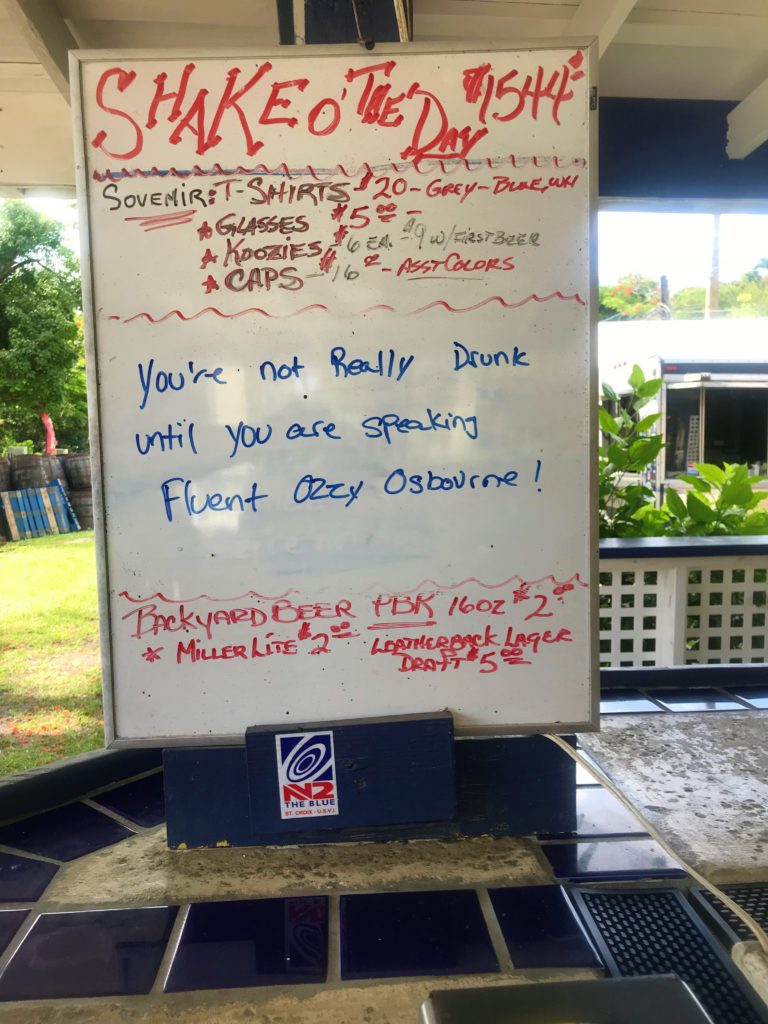 SHAKE O' THE DAY $1544
SOVEMIR: T-SHIRTS $20 - GREY - BLUE, WH
* GLASSES $5.00 -
* KOOZIES - $6 EA. - $9 W/ FIRST BEER
* CAPS - $16 - ASST COLORS
You're not Really Drunk
until you are speaking
Fluent Ozzy Osbourne!
BACKYARD BEER PBR 16OZ $2.00
* MILLER LITE $2.00 LEATHERBACK LAGER
DRAFT $5.00
N2
THE BLUE
ST. CROIX - U.S.V.I.